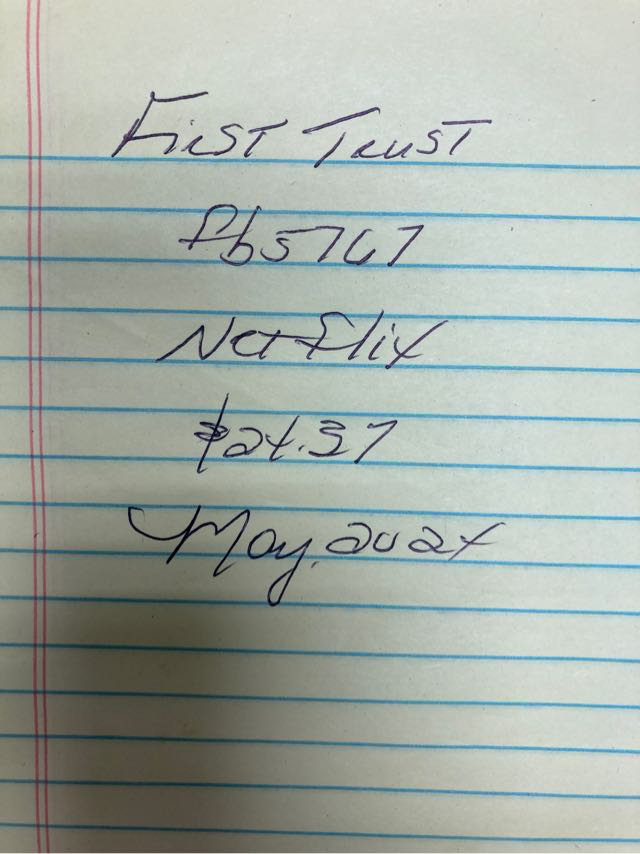 First Trust
fb5767
Netflix
$24.37
May, 2024